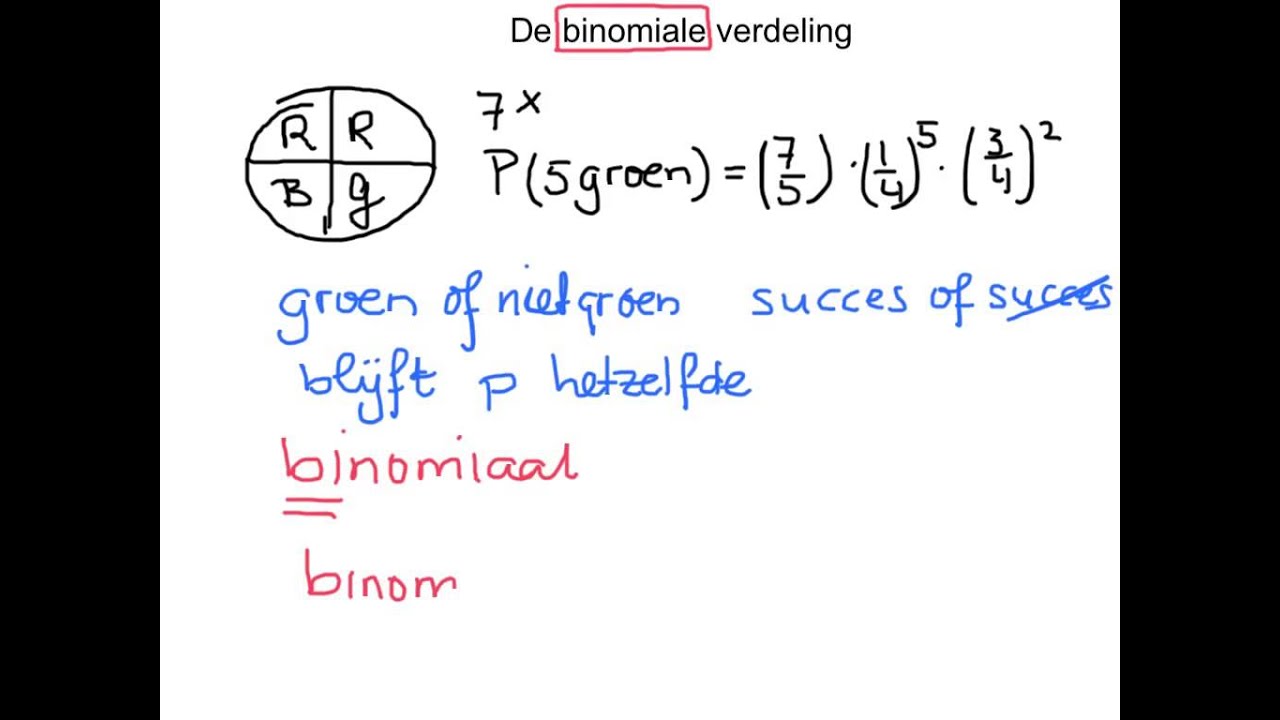 De binomiale verdeling
R R
B g
7 x
P(5 groen) = (7/5) · (1/4)^5 · (3/4)^2
groen of niet groen succes of succes
blijft p hetzelfde
binomiaal
binom